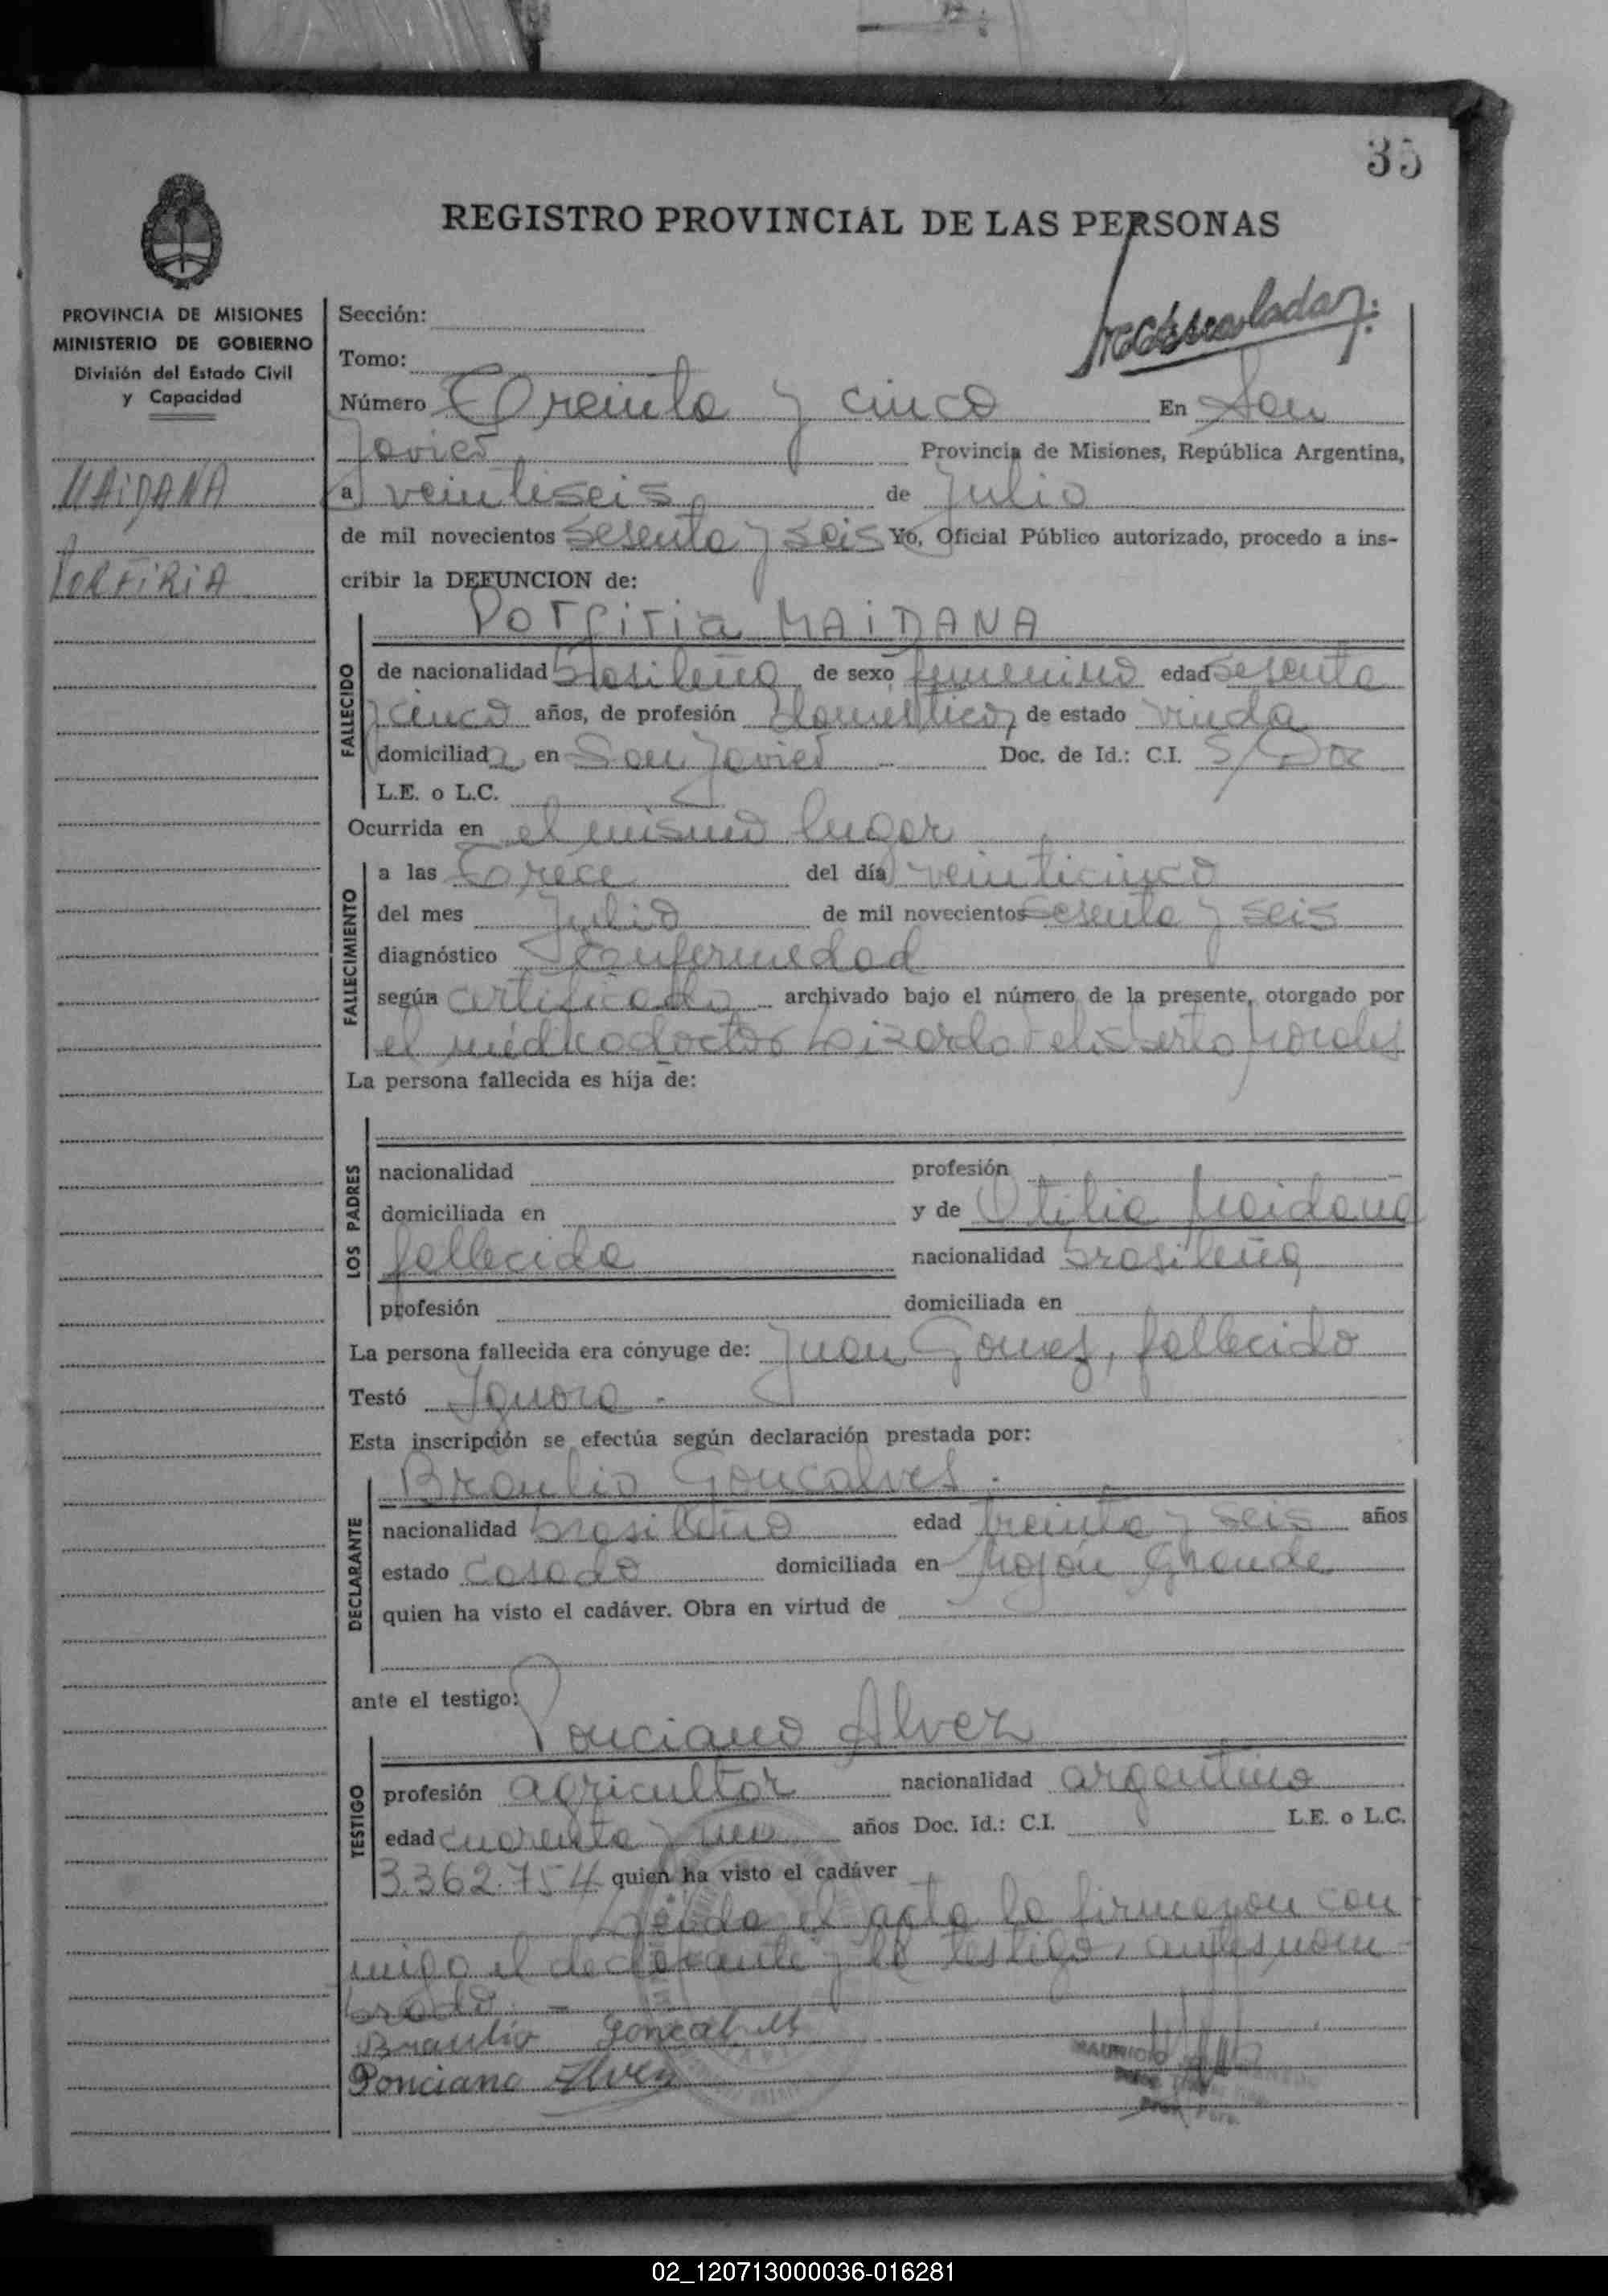 35
REGISTRO PROVINCIAL DE LAS PERSONAS
PROVINCIA DE MISIONES
MINISTERIO DE GOBIERNO
División del Estado Civil
y Capacidad
MAIDANA
PORFIRIA
Sección:
Tomo:
Número Treinta y cinco En San
Javier Provincia de Misiones, República Argentina,
a veintiseis de Julio
de mil novecientos sesenta y seis Yo, Oficial Público autorizado, procedo a ins-
cribir la DEFUNCION de:
Porfiria MAIDANA
FALLECIDO
de nacionalidad brasileña de sexo femenino edad sesenta
y cinco años, de profesión domestica, de estado viuda
domiciliada en San Javier Doc. de Id.: C.I. S/Doc
L.E. o L.C.
Ocurrida en el mismo lugar
FALLECIMIENTO
a las Trece del día veinticinco
del mes Julio de mil novecientos sesenta y seis
diagnóstico Enfermedad
según certificado archivado bajo el número de la presente, otorgado por
el médico doctor Lizardo Morales
La persona fallecida es hija de:
LOS PADRES
nacionalidad profesión
domiciliada en y de Otilia Maidana
fallecida nacionalidad brasileña
profesión domiciliada en
La persona fallecida era cónyuge de: Juan Gomez, fallecido
Testó Ignora -
Esta inscripción se efectúa según declaración prestada por:
Braulio Goncalves.
DECLARANTE
nacionalidad brasileño edad treinta y seis años
estado casado domiciliada en Mojón Grande
quien ha visto el cadáver. Obra en virtud de
ante el testigo:
Ponciano Alvez
TESTIGO
profesión agricultor nacionalidad argentino
edad cuarenta y uno años Doc. Id.: C.I. L.E. o L.C.
3.362.754 quien ha visto el cadáver
Leida el acta la firmaron con
migo el declarante y el testigo, antes nom
brado. -
Braulio Goncalves
Ponciano Alvez
MAURICIO
02_120713000036-016281